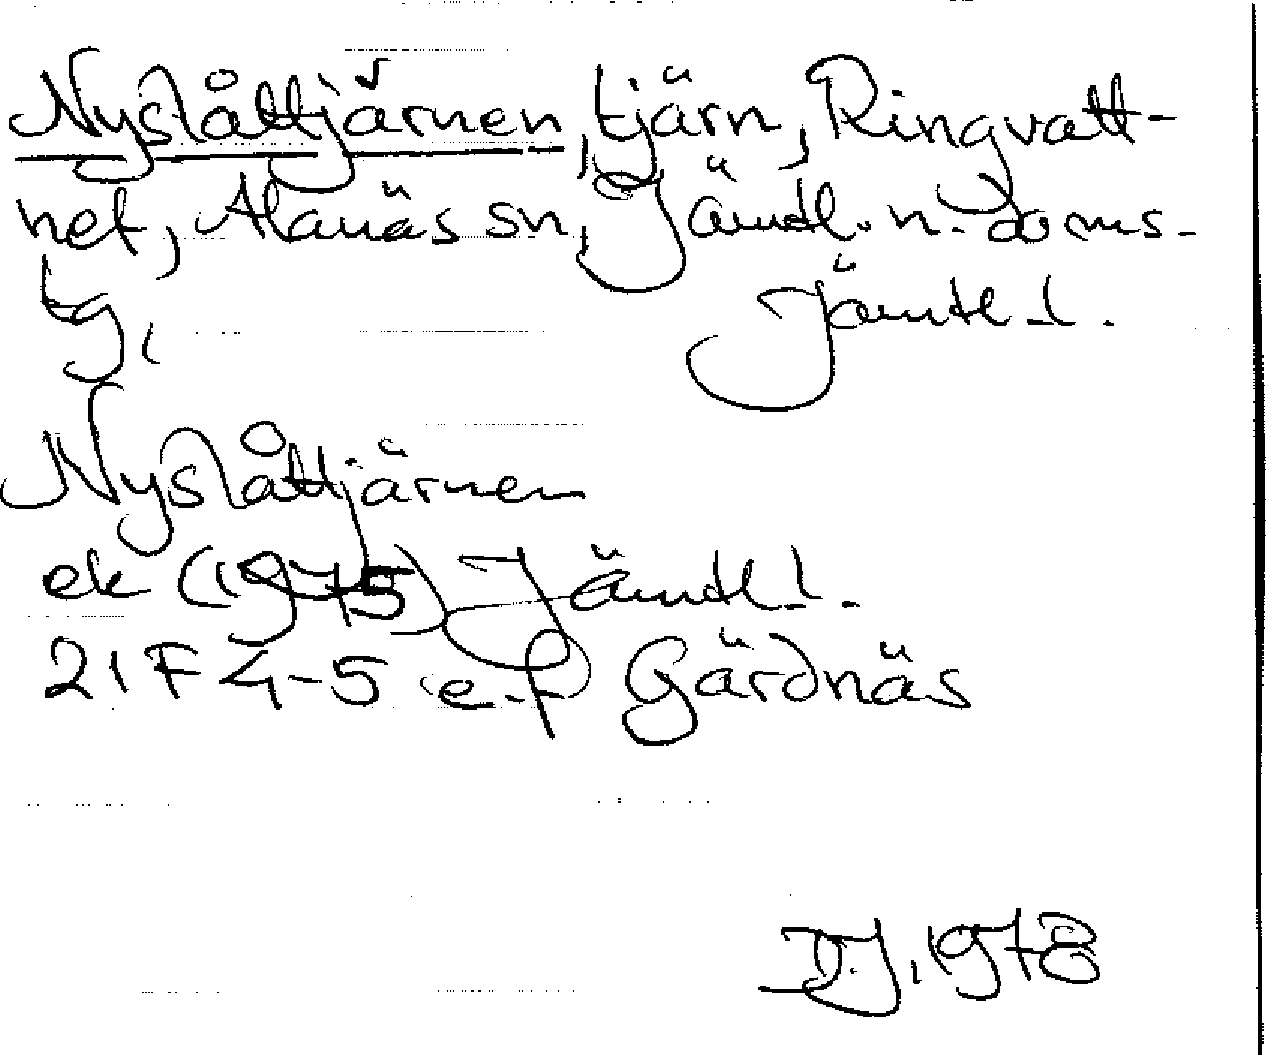 Nyslåttjärnen, tjärn, Ringvatt-
net, Alanäs sn, Jämtl. n. doms-
tg,
Jämtl. l.
Nyslåttjärnen
ek (1975) Jämtl. l.
21 F 4-5 e-f Gärdnäs
D.J. 1978